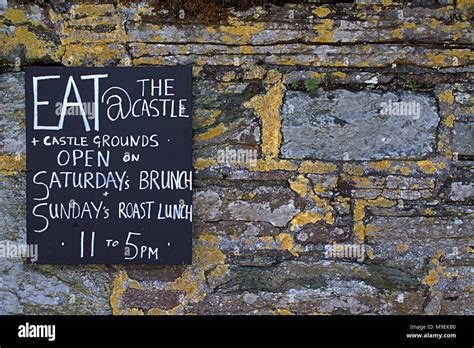 EAT @ THE CASTLE
+ CASTLE GROUNDS
OPEN ON
SATURDAY'S BRUNCH
+
SUNDAY'S ROAST LUNCH
· 11 TO 5PM ·
alamy
Image ID: M9EKB0
www.alamy.com